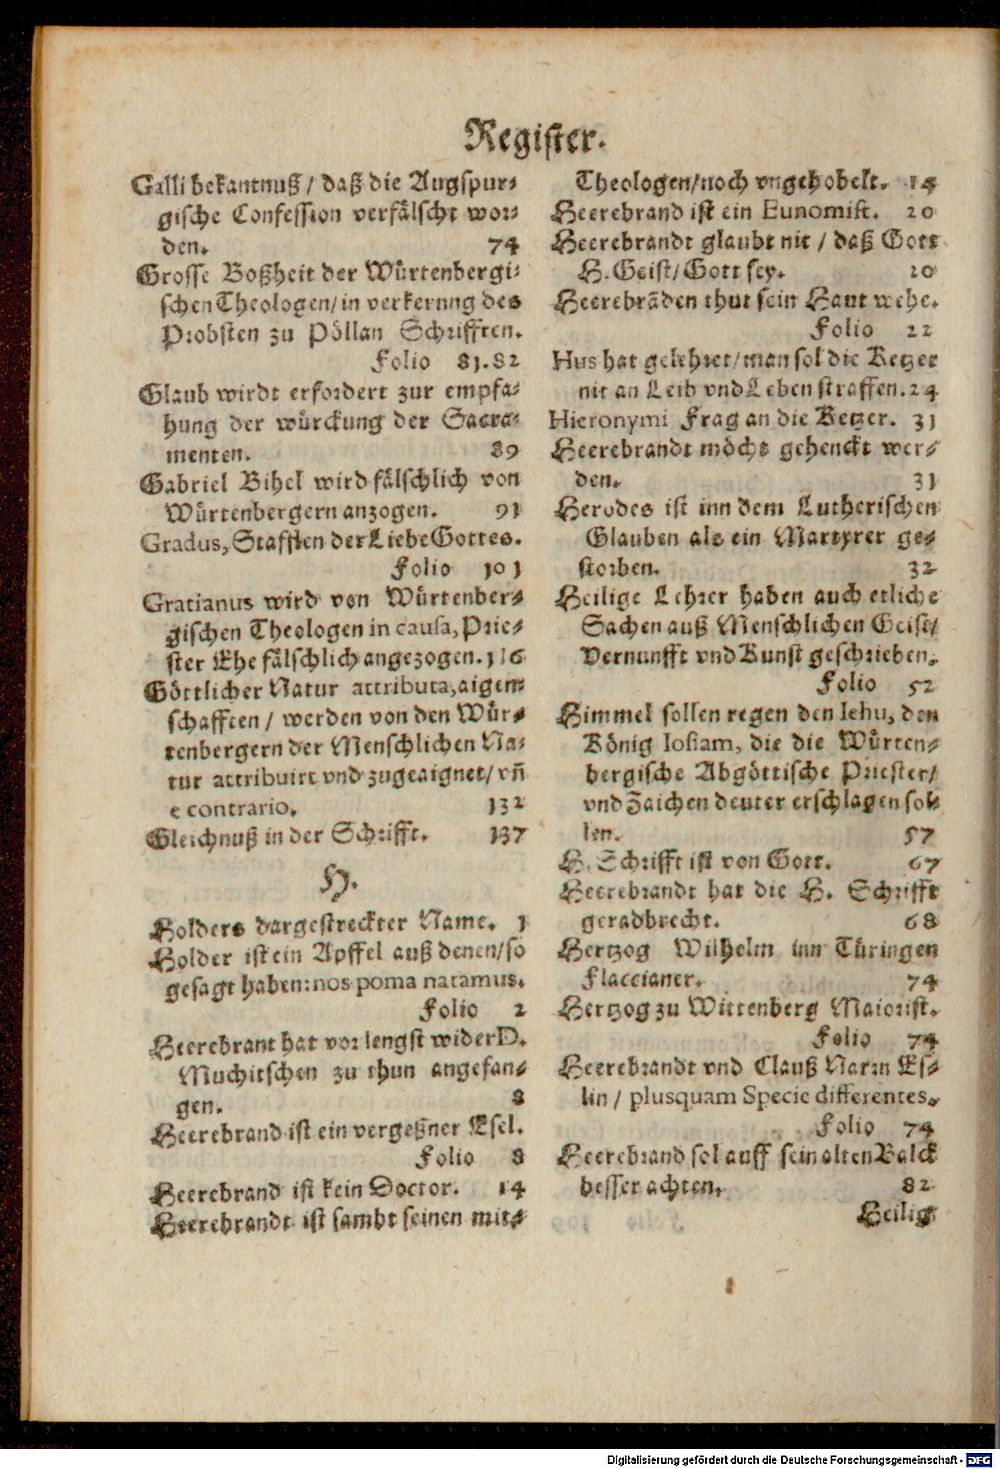 Register.
Galli bekantnuß / daß die Augspur-
gische Confession verfälscht wor-
den. 74
Grosse Boßheit der Würtenbergi-
schen Theologen/in verkerung des
Probsten zu Pöllan Schrifften.
Folio 81.82
Glaub wirdt erfordert zur empfa-
hung der würckung der Sacra-
menten. 89
Gabriel Bihel wird fälschlich von
Würtenbergern anzogen. 91
Gradus, Stafflen der Liebe Gottes.
Folio 101
Gratianus wird von Würtenber-
gischen Theologen in causa, Prie-
ster Ehe fälschlich angezogen. 116
Göttlicher Natur attributa, aigen-
schafften / werden von den Wür-
tenbergern der Menschlichen Na-
tur attribuirt vnd zugeaignet/ vñ
e contrario. 132
Gleichnuß in der Schrifft. 137
H.
Holders dargestreckter Name. 1
Holder ist ein Apffel auß denen/so
gesagt haben: nos poma natamus.
Folio 2
Heerebrant hat vorlengst wider D.
Muchitschen zu thun angefan-
gen. 8
Heerebrand ist ein vergeßner Esel.
Folio 8
Heerebrand ist kein Doctor. 14
Heerebrandt ist sambt seinen mit-
Theologen/noch vngehobelt. 14
Heerebrand ist ein Eunomist. 20
Heerebrandt glaubt nit / daß Gott
H. Geist/Gott sey. 20
Heerebrãden thut sein Haut wehe.
Folio 22
Hus hat gelehret/man sol die Ketzer
nit an Leib vnd Leben straffen. 24
Hieronymi Frag an die Ketzer. 31
Heerebrandt möcht gehenckt wer-
den. 31
Herodes ist inn dem Lutherischen
Glauben als ein Martyrer ge-
storben. 32
Heilige Lehrer haben auch etliche
Sachen auß Menschlichen Geist/
Vernunfft vnd Kunst geschrieben.
Folio 52
Himmel sollen regen den Iehu, den
König Iosiam, die die Würten-
bergische Abgöttische Priester/
vnd Zaichen deuter erschlagen sol-
len. 57
H. Schrifft ist von Gott. 67
Heerebrandt hat die H. Schrifft
geradbrecht. 68
Hertzog Wilhelm inn Türingen
Flaccianer. 74
Hertzog zu Wittenberg Maiorist.
Folio 74
Heerebrandt vnd Clauß Narrn Es-
lin / plusquam Specie differentes.
Folio 74
Heerebrand sol auff sein alten Balck
besser achten. 82
Heilig
Digitalisierung gefördert durch die Deutsche Forschungsgemeinschaft - DFG